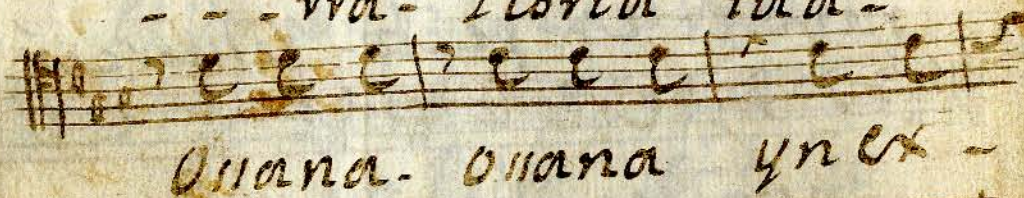 - - - rra- Gloria tua-
Ossana- ossana yn ex -